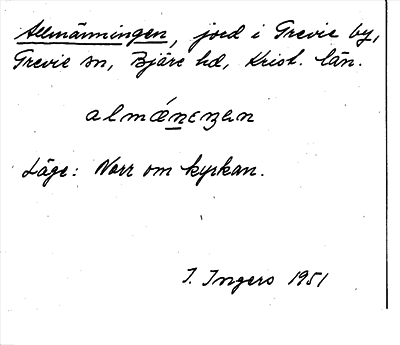 Allmänningen, jord i Grevie by,
Grevie sn, Bjäre hd, Krist. län.
almǽnenzen
Läge: Norr om kyrkan.
I. Ingers 1951